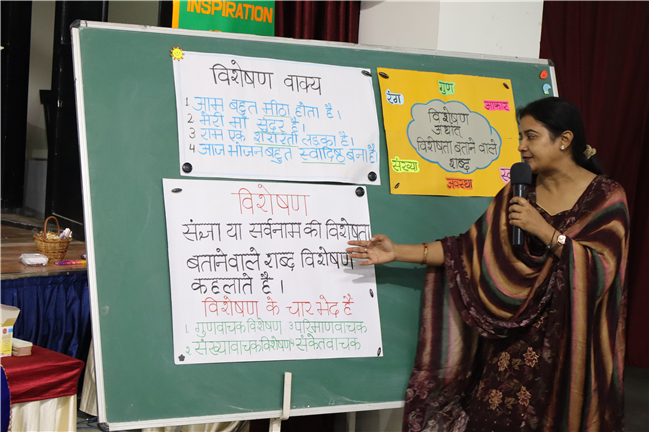 INSPIRATION
विशेषण वाक्य
1 आम बहुत मीठा होता है।
2 मेरी माँ सुंदर है।
3 राम एक शरारती लड़का है।
4 आज भोजन बहुत स्वादिष्ट बना है।
रंग
गुण
आकार
विशेषण
अर्थात
विशेषता बताने वाले
शब्द
संख्या
अवस्था
विशेषण
संज्ञा या सर्वनाम की विशेषता
बतानेवाले शब्द विशेषण
कहलाते है।
विशेषण के चार भेद है
1 गुणवाचक विशेषण 3 परिमाणवाचक
2 संख्यावाचक विशेषण 4 संकेतवाचक